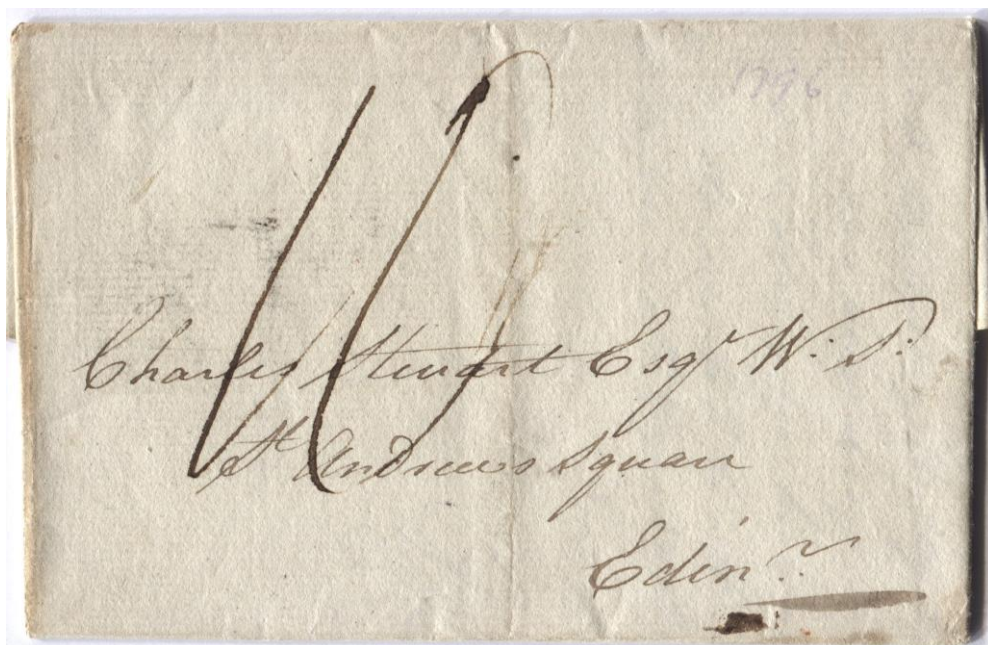 1796
Charles Steuart Esqr W: S:
St Andrews Square
Edinr.